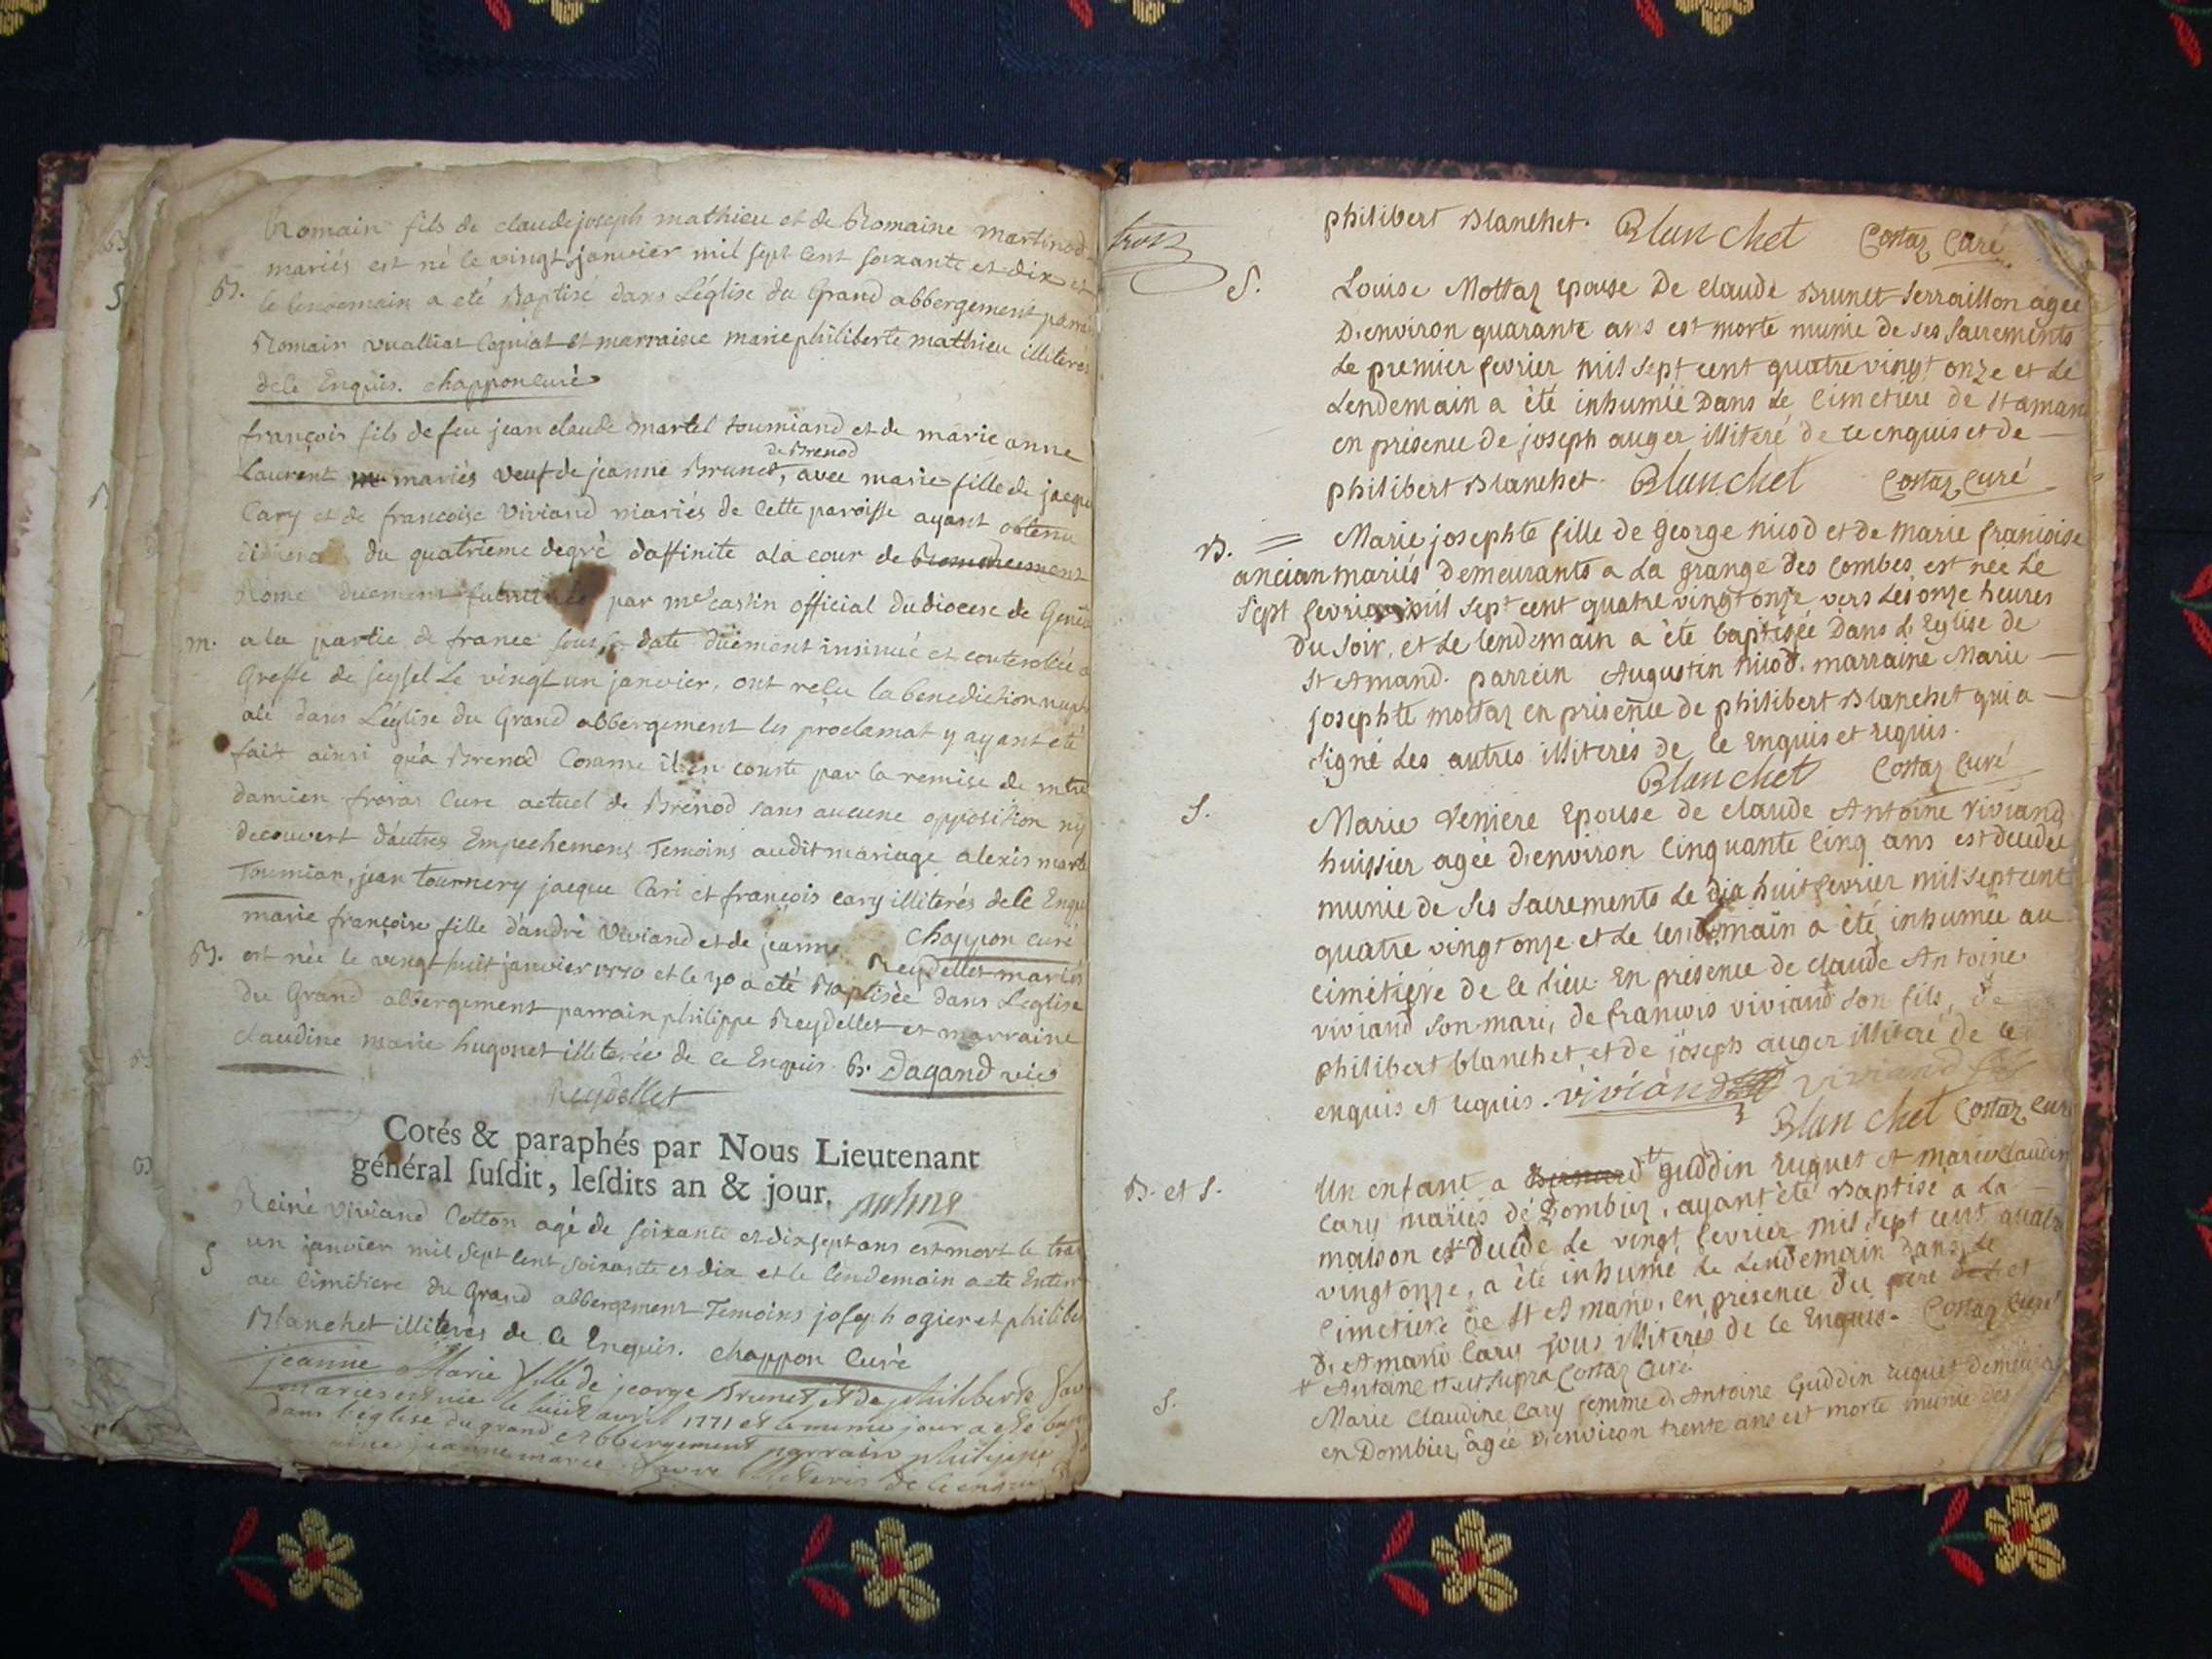 Romain fils de claude joseph mathieu et de Romaine martinod
mariés est né le vingt janvier mil sept cent soixante et dix et
B. le lendemain a eté Baptisé dans L'église du Grand abbergement parrain
Romain vualliat Cogniat et marraine marie philiberte mathieu illiterés
de ce Enquis. chappon curé
françois fils de feu jean claude martel toumiand et de marie anne
de Brenod
Laurent mariés veuf de jeanne Brunet, avec marie fille de jacque
Cary et de francoise Viviand mariés de cette paroisse ayant obtenu
du quatrieme degré d'affinite a la cour de
Rome duement par me castin official du diocese de Genev
m. a la partie de france sous sa date düement insinué et conterolée a
Greffe de seyssel Le vingt un janvier, ont reçu la benediction nupti
ale dans L'église du Grand abbergement les proclamat y ayant eté
fait ainsi qu'a Brenod Comme il en conste par la remise de mtre
damien froras Cure actuel de Brenod sans aucune opposition ny
decouvert d'autres Empechemens Temoins audit mariage alexis martel
Toumian, jean tournery jacque Cari et françois cary illiterés de ce Enqu
chappon curé
marie françoise fille d'andré Viviand et de jeanne Reydellet mariés
B. est née le vingt huit janvier 1770 et le 30 a eté Baptisée dans L'eglise
du Grand abbergement parrain philippe Reydellet et marraine
claudine marie hugonet illiterée de ce Enquis. Br. Dagand vic
Reydellet
Cotés & paraphés par Nous Lieutenant
général ſuſdit, leſdits an & jour.
Reiné Viviand Cotton agé de soixante et dix sept ans est mort le tran
S un janvier mil sept cent soixante et dix et le lendemain a ete Enter
au Cimetiere du Grand abbergement Temoins joseph ogier et philibe
Blanchet illiterés de ce Enquis. chappon Curé
jeanne Marie fille de jeorge Brunet et de philiberte
mariés est née le huit avril 1771 et le meme jour a eté
dans l'eglise du grand Abbergement parrain
jeanne marie de ce enquis
trois
philibert Blanchet. Blanchet Costaz Curé
S. Louise Mottaz Epouse De claude Brunet serraillon agée
D'environ quarante ans est morte munie de ses sacrements
Le premier fevrier mil sept cent quatre vingt onze et Le
Lendemain a été inhumée Dans Le Cimetiere de St amand
en présence de joseph auger illiteré de ce enquis et de
philibert Blanchet. Blanchet Costaz Curé
B. = Marie josephte fille de George nicod et de Marie françoise
ancian mariés Demeurants a La grange Des Combes est née Le
Sept fevrier mil sept cent quatre vingt onze vers Les onze heures
Du soir, et Le lendemain a été baptisée Dans L'Eglise de
St Amand. parrein Augustin nicod. marraine Marie
josephte mottaz en présence de philibert Blanchet qui a
signé Les autres illiterés de ce Enquis et requis.
Blanchet Costaz Curé
S. Marie Veniere Epouse de claude Antoine Viviand
huissier agée D'environ Cinquante Cinq ans est decedée
munie de ses sacrements Le dix huit fevrier mil sept cent
quatre vingt onze et Le lendemain a été inhumée au
Cimetiére de ce Lieu En présence de claude Antoine
viviand son mari, de francois viviand son fils, de
philibert blanchet et de joseph auger illiteré de ce
enquis et requis. viviand viviand fils
Blanchet Costaz Curé
B. et S. Un enfant a + guddin ruguet et marie Claudine
Cary mariés de Dombiez, ayant été Baptisé a La
maison est decedé Le vingt fevrier mil sept cent quatre
vingt onze, a été inhumé Le Lendemain dans Le
Cimetiére de St Amand, en présence du pere et
D'Amand Cary tous illiterés de ce Enquis. Costaz Curé
+ Antoine ut supra Costaz Curé
S. Marie Claudine Cary femme D'Antoine Guddin ruguet demeura
en Dombiez, agée D'environ trente ans est morte munie des